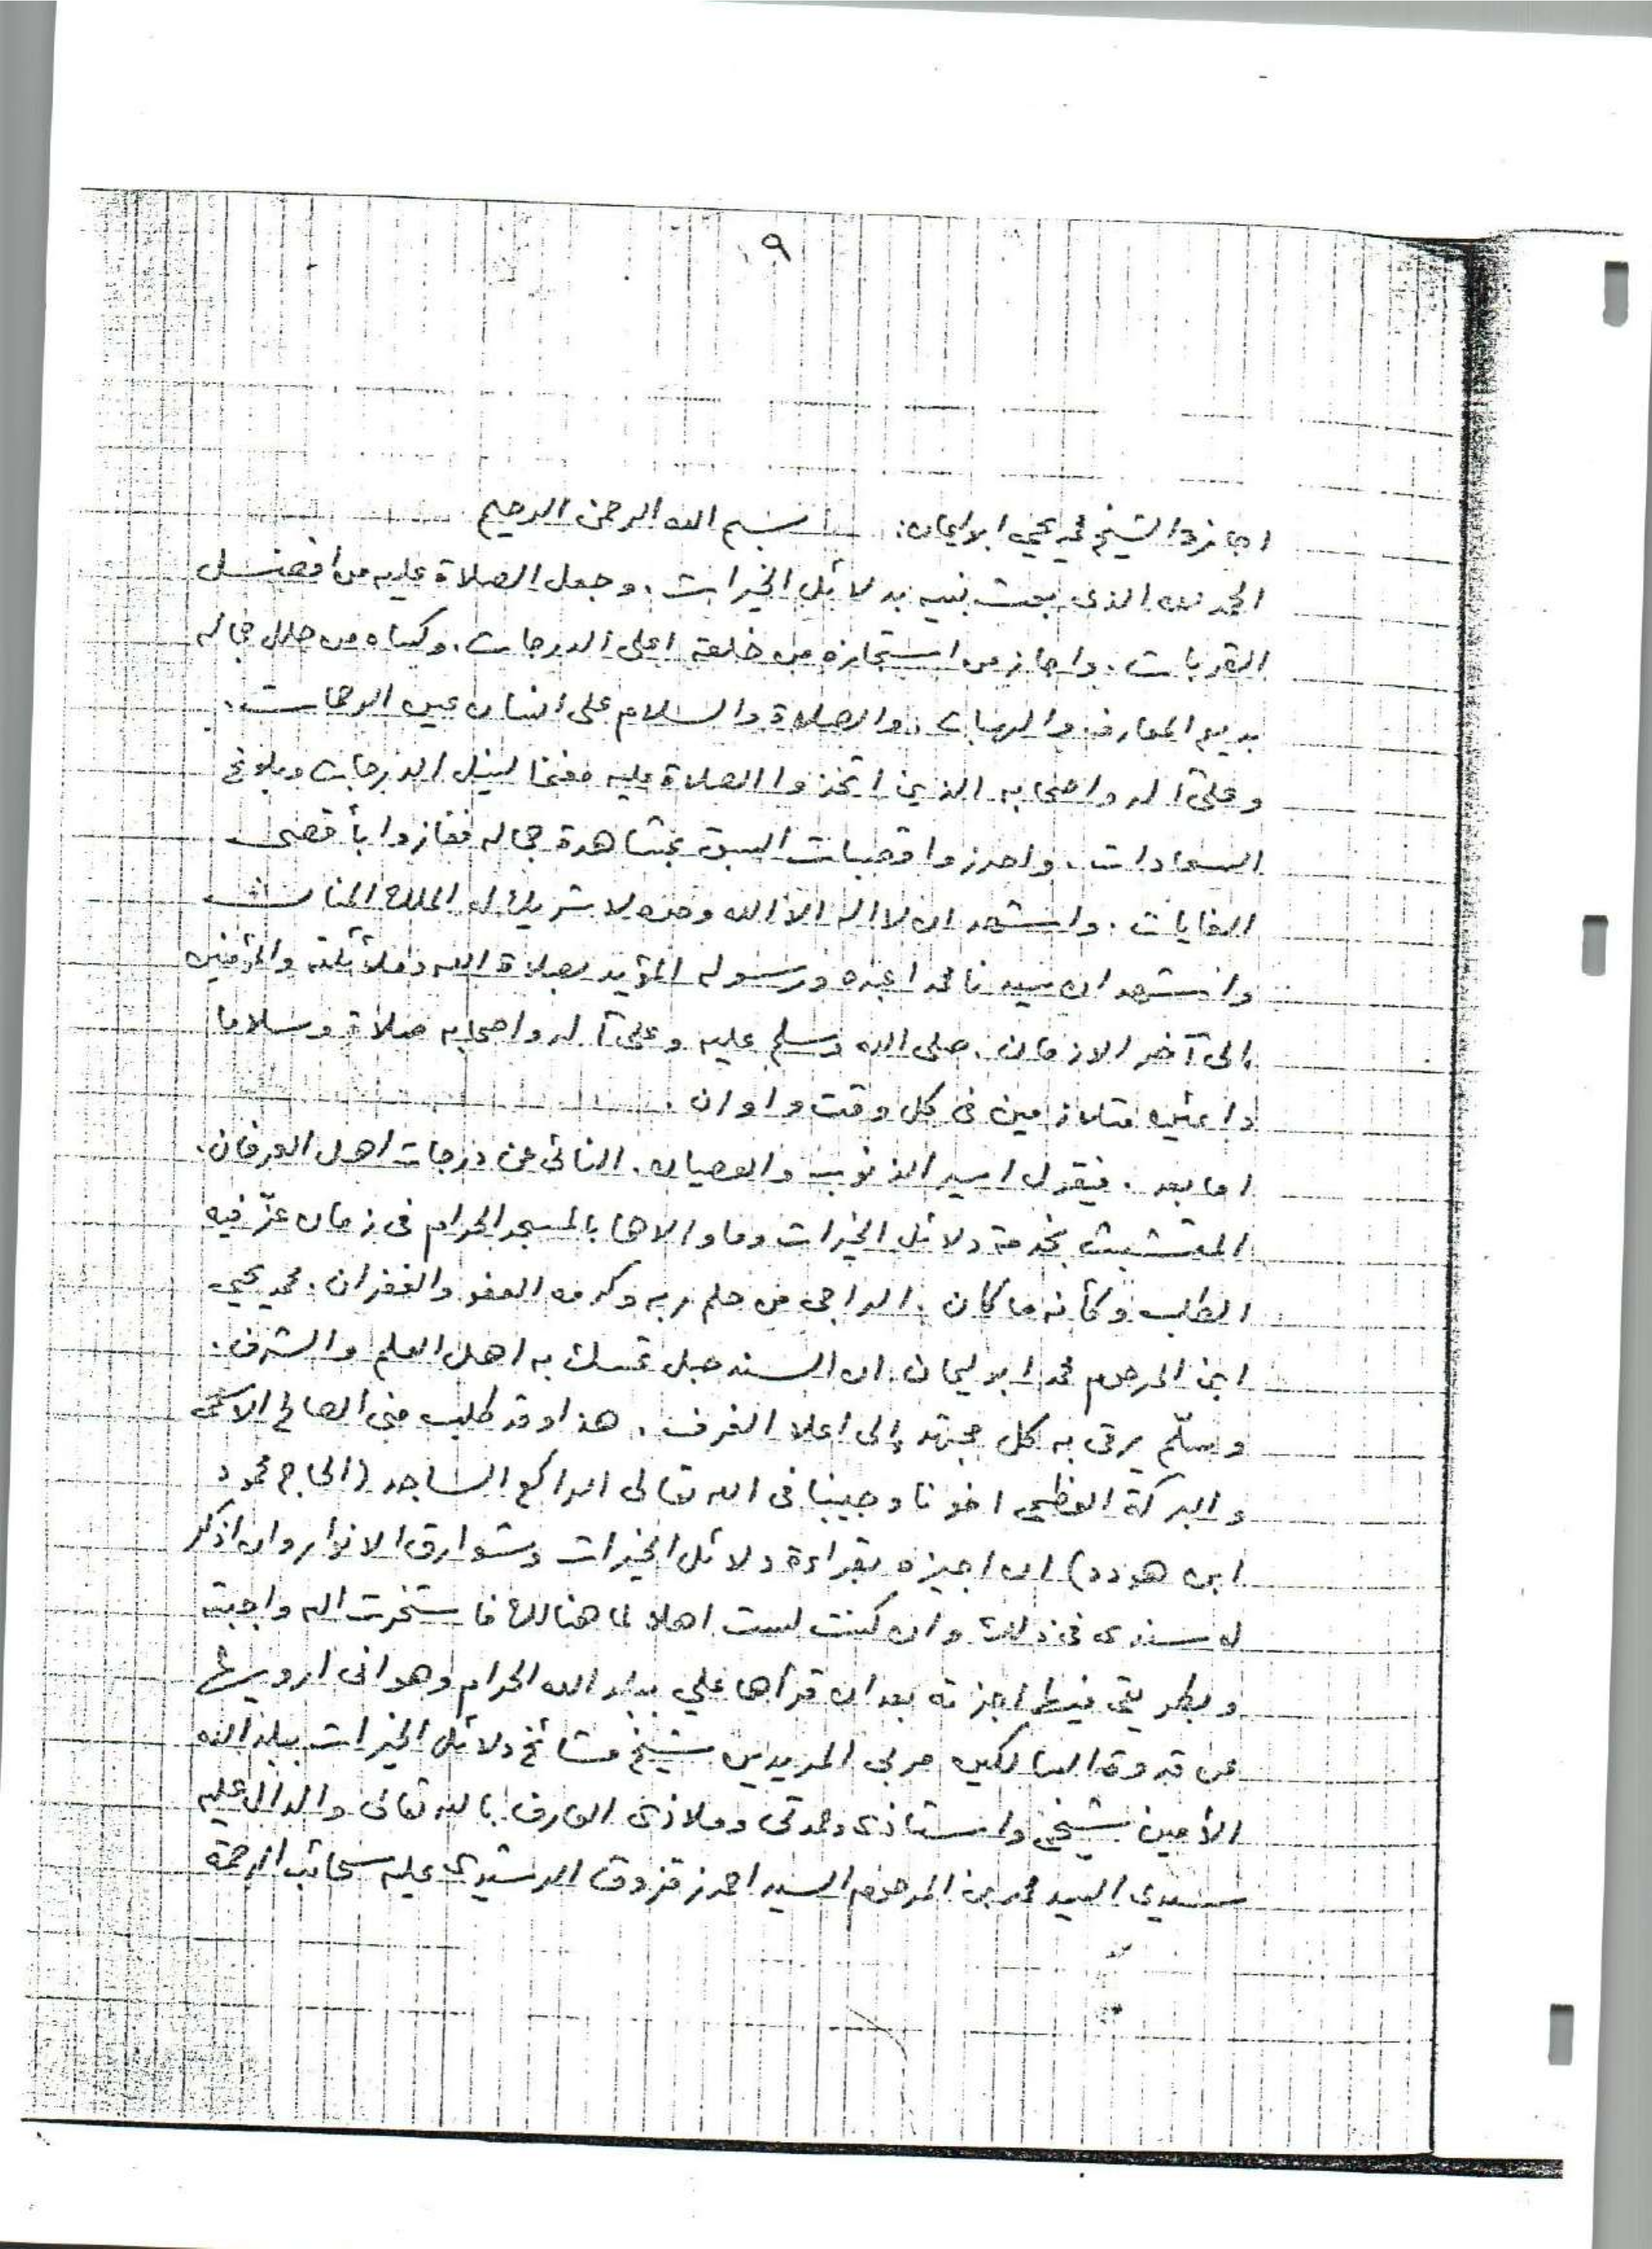 ٩
اجازة الشيخ محمد يحيي ابو الامان: بسم الله الرحمن الرحيم
الحمد لله الذى بعث نبيه بدلائل الخيرات. وجعل الصلاة عليه من افضل
القربات. واجاز من استجازه من خلقه اعلى الدرجات. وكساه من حلل جماله
بديع المعارف والهبات. والصلاة والسلام على انسان عين الرحمات.
وعلى آله واصحابه الذين اتخذوا الصلاة عليه مغنما لنيل الدرجات وبلوغ
السعادات. واحرزوا قصبات السبق بمشاهدة جماله ففازوا بأقصى
الغايات. واشهد ان لا اله الا الله وحده لا شريك له الملك المنان
واشهد ان سيدنا محمدا عبده ورسوله المؤيد بصلاة الله وملائكته والمؤمنين
إلى آخر الازمان. صلى الله وسلم عليه وعلى آله واصحابه صلاة وسلاما
دائمين متلازمين فى كل وقت واوان.
اما بعد. فيقول اسير الذنوب والعصيان. النائى عن درجات اهل العرفان.
المتشبث بخدمة دلائل الخيرات وما والاها بالمسجد الحرام فى زمان عزّ فيه
الطلب وكأنه ما كان. الراجى من حلم ربه وكرمه العفو والغفران. محمد يحيي
ابن المرحوم محمد ابو ليمان. ان السند حبل تمسك به اهل العلم والشرف.
وسلّم يرقى به كل مجتهد إلى اعلا الغرف. هذا وقد طلب منى الصالح الاسمى
والبركة العظمى اخونا وحبيبنا فى الله تعالى الراكع الساجد (الحاج محمود
ابن هودد) ان اجيزه بقراءة دلائل الخيرات وشوارق الانوار وان اذكر
له سندى فى ذلك وان كنت لست اهلا لما هنالك فاستخرت الله واجبته
وبطريقى فيها اجزته بعد ان قرأها علي ببلد الله الحرام وهو انى ارويها
عن قدوة السالكين مربى المريدين شيخ مشائخ دلائل الخيرات ببلد الله
الأمين شيخى واستاذى وعمدتى وملاذى العارف بالله تعالى والدال عليه
سيدى السيد محمد بن المرحوم السيد احمد زقزوق الرشيدى عليه سحائب الرحمة